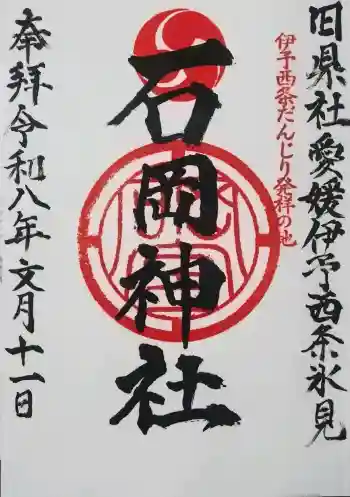 旧県社愛媛伊予西条氷見
伊予西条だんじり発祥の地
石岡神社
奉拝令和八年文月十一日